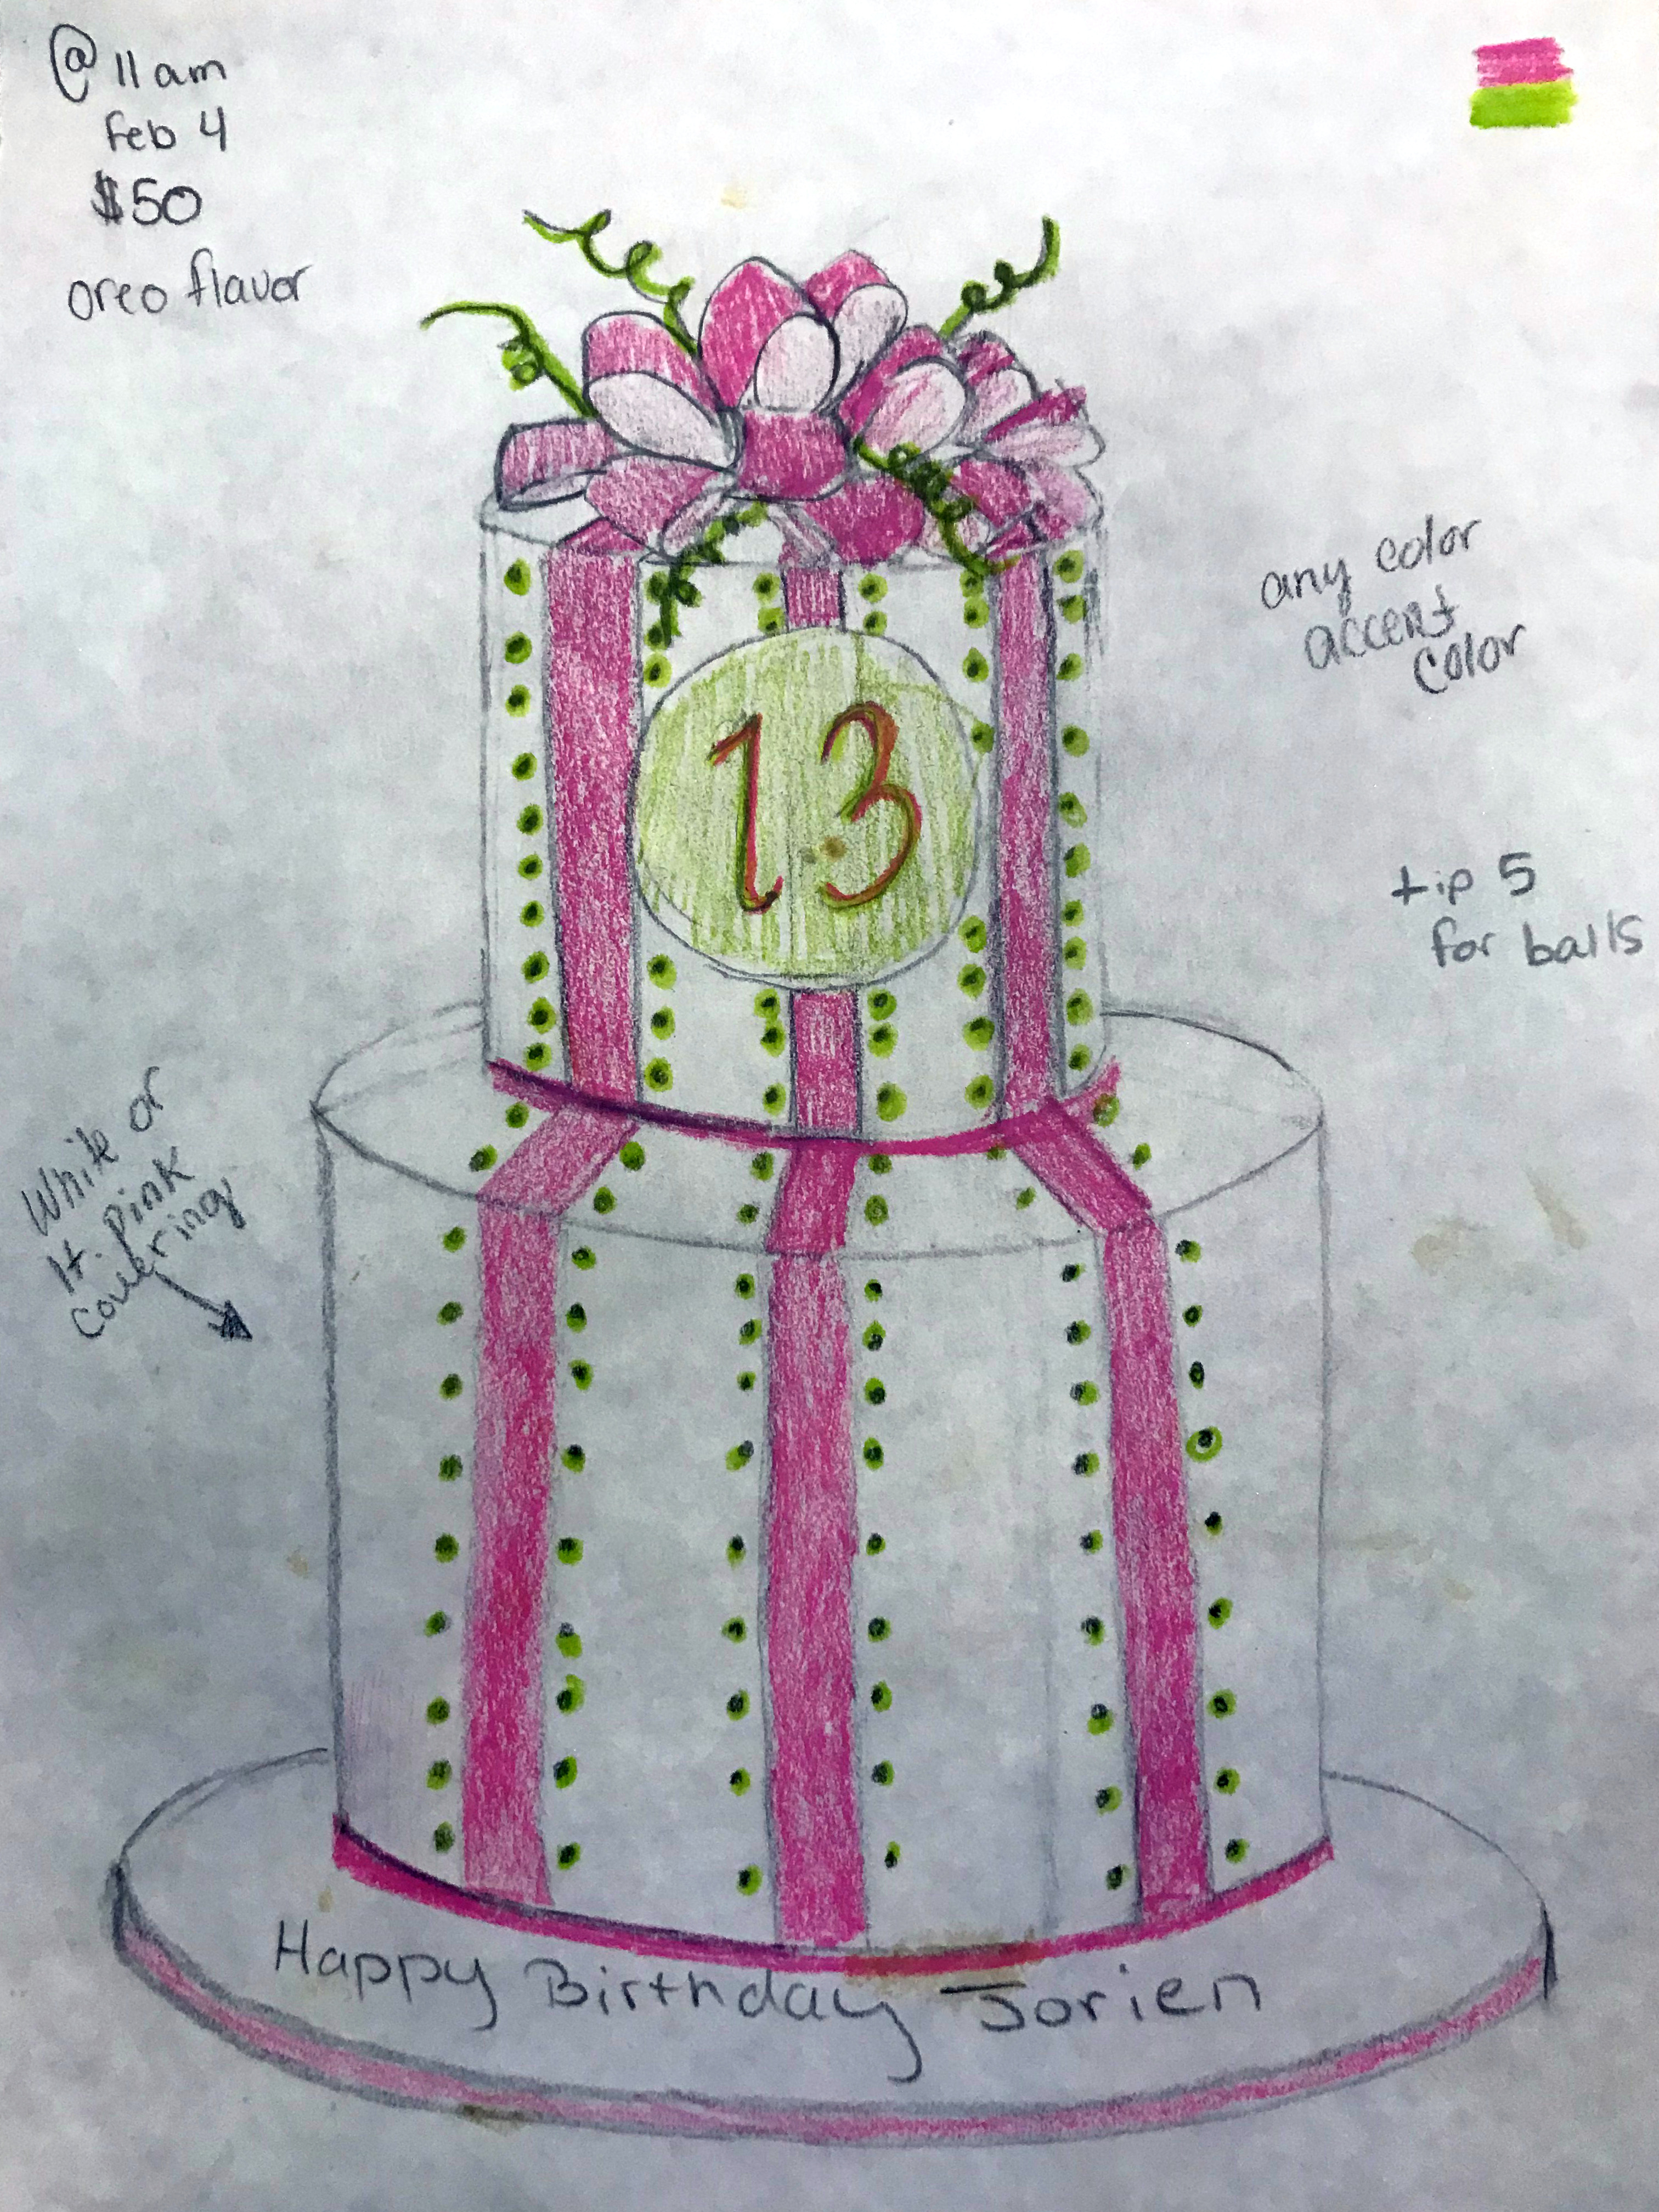 @ 11 am
Feb 4
$50
oreo flavor
any color
accent
color
13
tip 5
for balls
White or
lt. pink
covering
Happy Birthday Jorien